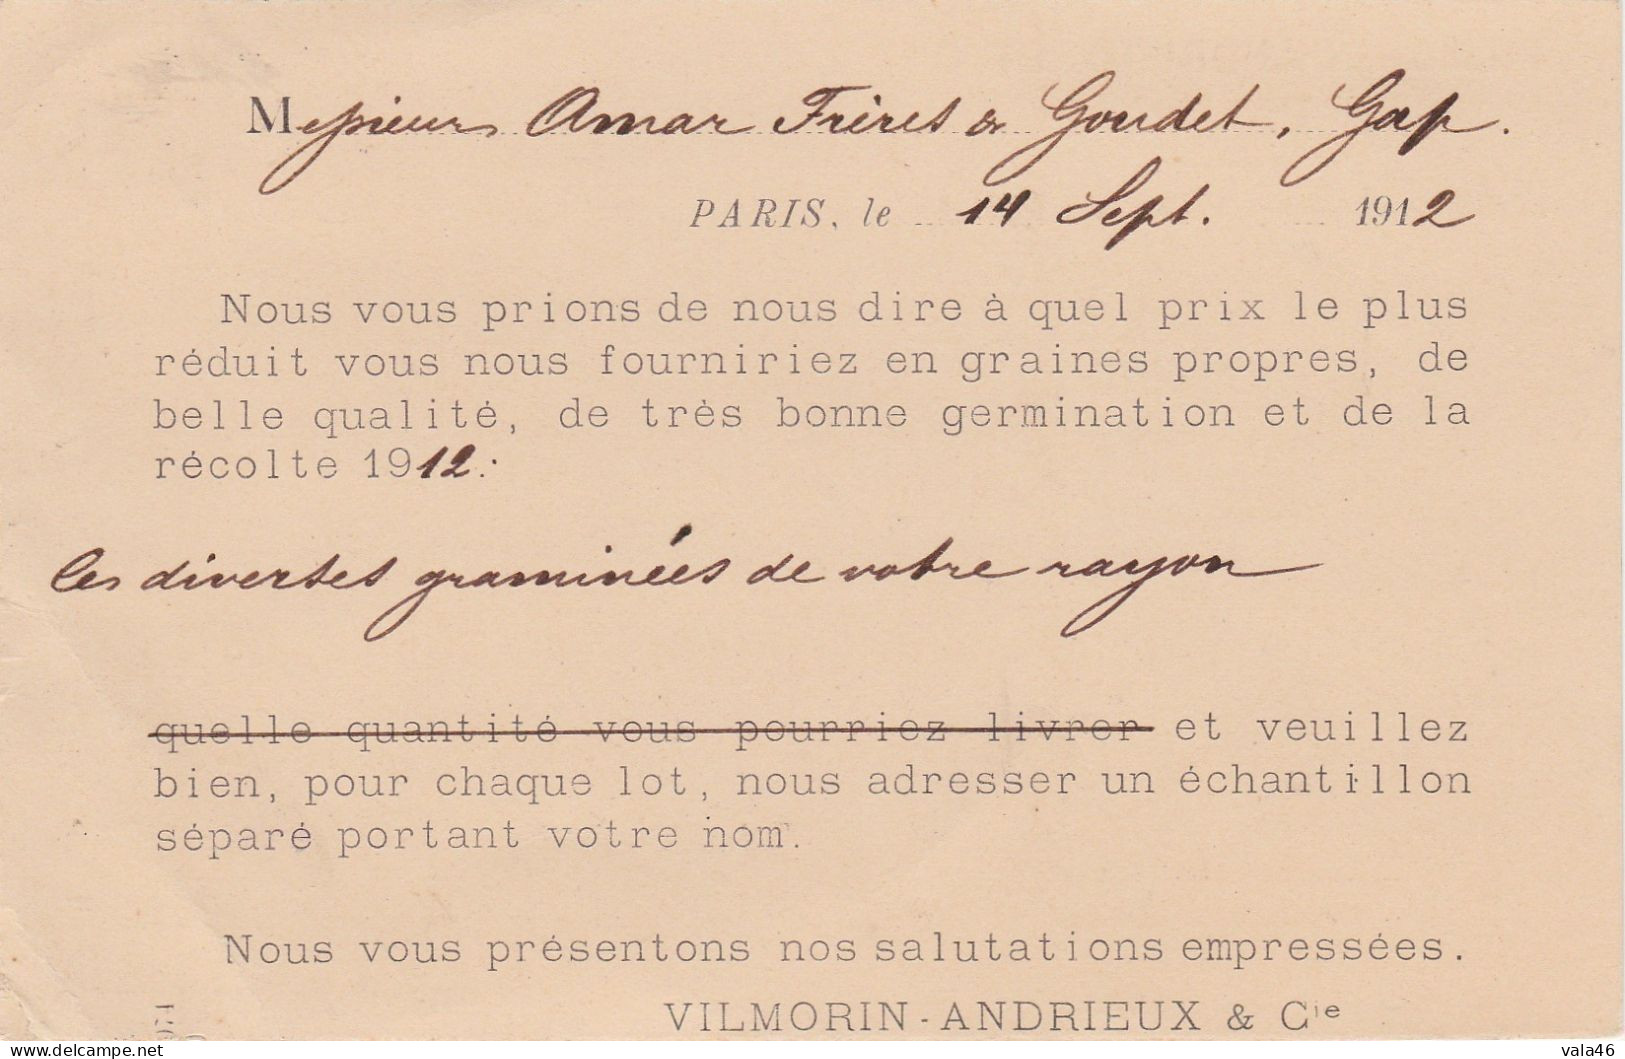 Messieurs Amar Frères & Goudet, Gap.
PARIS, le 14 Sept. 1912
Nous vous prions de nous dire à quel prix le plus
réduit vous nous fourniriez en graines propres, de
belle qualité, de très bonne germination et de la
récolte 1912:
les diverses graminées de votre rayon
quelle quantité vous pourriez livrer et veuillez
bien, pour chaque lot, nous adresser un échantillon
séparé portant votre nom.
Nous vous présentons nos salutations empressées.
VILMORIN-ANDRIEUX & Cie
delcampe.net
vala46